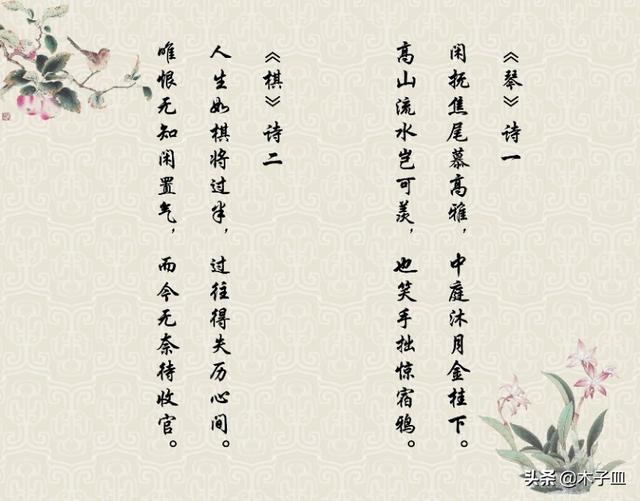 《琴》诗一
闲抚焦尾慕高雅，中庭沐月金桂下。
高山流水岂可羡，也笑手拙惊宿鸦。
《棋》诗二
人生如棋将过半，过往得失历心间。
唯恨无知闲置气，而今无奈待收官。
头条@木子皿